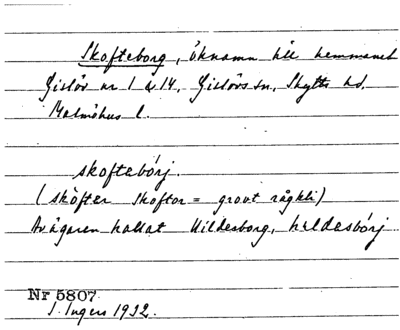 Skofteborg, öknamn till hemmanet
Gislöv nr 1 & 14, Gislövs sn, Skytts hd.
Malmöhus l.
skoftebórj.
(skófter skoftor = grovt rågkli)
Av ägaren kallat Hildesborg, hildesbórj
Nr 5807
I. Ingers 1932.